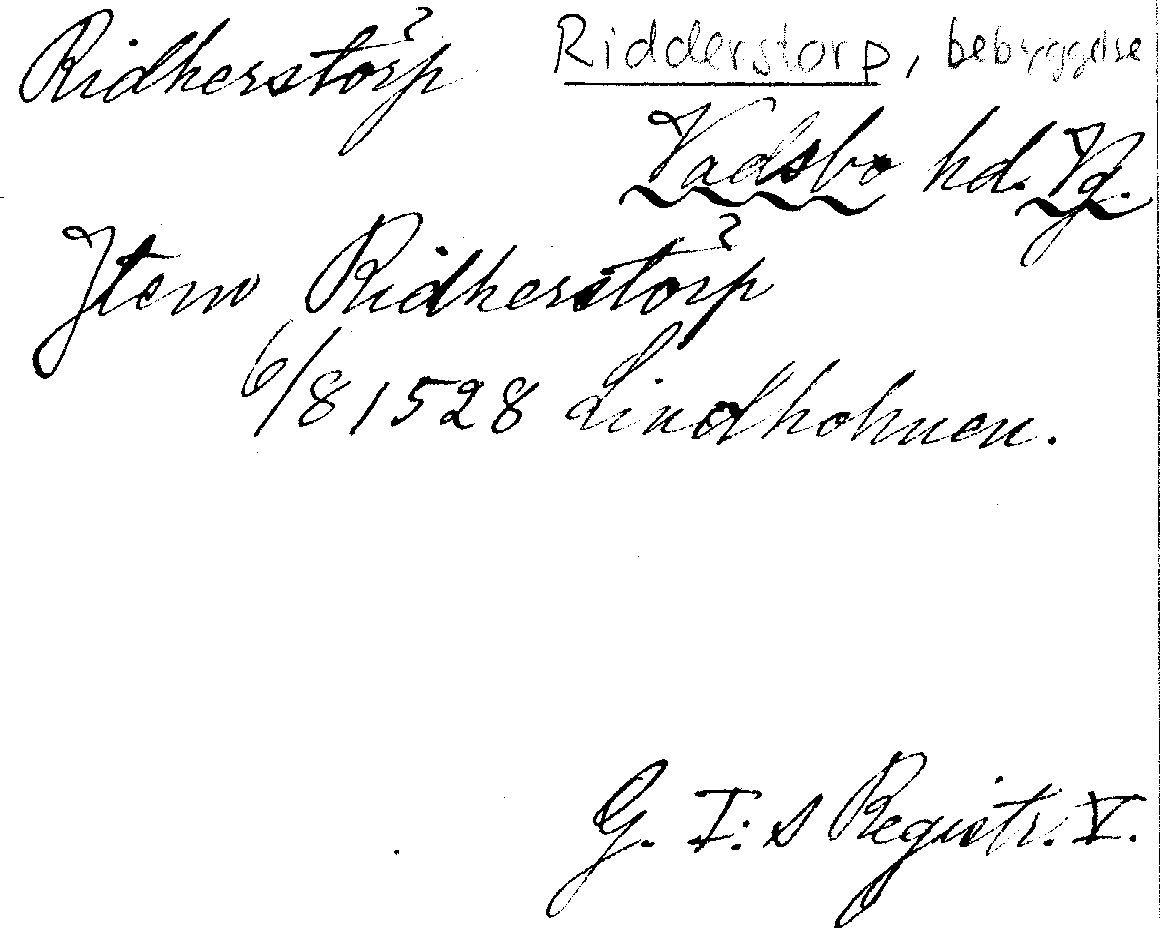 Ridherstorp Ridderstorp, bebyggelse
Vadsbo hd. Vg.
Item Ridherstorp
6/8 1528 Lindholmen.
G. I:s Registr. V.